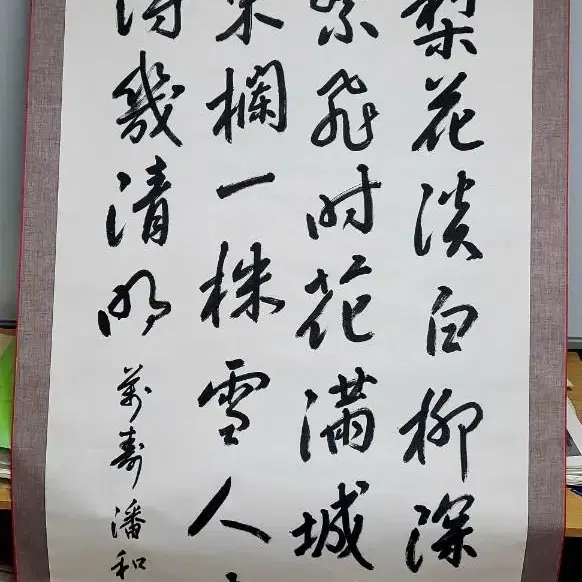 梨花淡白柳深
絮飛时花滿城
東欄一株雪人
得幾清明
萬壽潘和